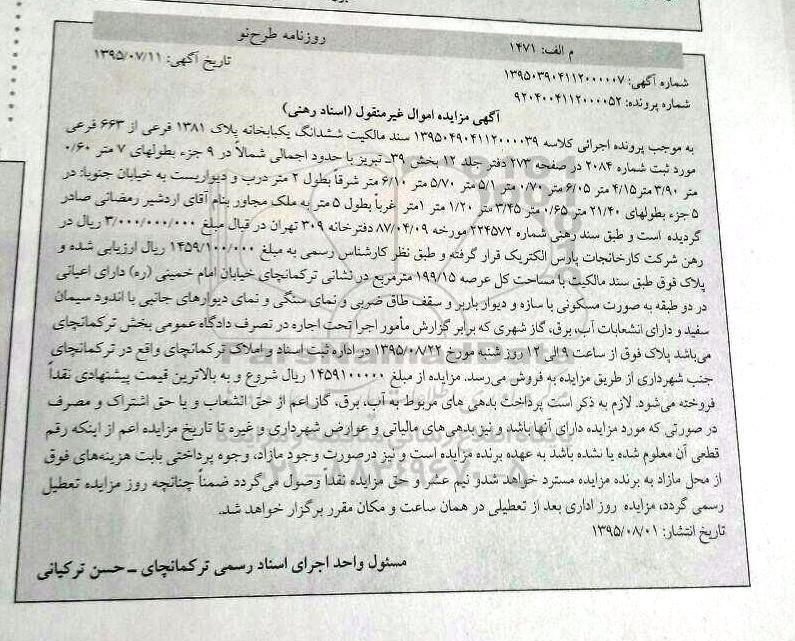 روزنامه طرح‌نو
م الف: ۱۴۷۱
تاریخ آگهی: ۱۳۹۵/۰۷/۱۱
شماره آگهی: ۱۳۹۵۰۳۹۰۴۱۱۲۰۰۰۰۰۷
شماره پرونده: ۹۲۰۴۰۰۴۱۱۲۰۰۰۰۵۲
آگهی مزایده اموال غیرمنقول (اسناد رهنی)
به موجب پرونده اجرائی کلاسه ۱۳۹۵۰۴۹۰۴۱۱۲۰۰۰۰۳۹ سند مالکیت ششدانگ یکبابخانه پلاک ۱۳۸۱ فرعی از ۶۶۳ فرعی
مورد ثبت شماره ۲۰۸۴ در صفحه ۲۷۳ دفتر جلد ۱۲ بخش ۳۹ـ تبریز با حدود اجمالی شمالاً در ۹ جزء بطولهای ۷ متر ۰/۶۰
متر ۳/۹۰ متر ۴/۱۵ متر ۶/۰۵ متر ۰/۷۰ متر ۵/۱ متر ۵/۷۰ متر ۶/۱۰ متر شرقاً بطول ۲ متر درب و دیواریست به خیابان جنوبا: در
۵ جزء بطولهای ۲۱/۴۰ متر ۰/۶۵ متر ۳/۴۵ متر ۱/۲۰ متر ۱متر غرباً بطول ۵ متر به ملک مجاور بنام آقای اردشیر رمضانی صادر
گردیده است و طبق سند رهنی شماره ۲۲۴۵۷۲ مورخه ۸۷/۰۴/۰۹ دفترخانه ۳۰۹ تهران در قبال مبلغ ۳/۰۰۰/۰۰۰/۰۰۰ ریال در
رهن شرکت کارخانجات پارس الکتریک قرار گرفته و طبق نظر کارشناس رسمی به مبلغ ۱۴۵۹/۱۰۰/۰۰۰ ریال ارزیابی شده و
پلاک فوق طبق سند مالکیت با مساحت کل عرصه ۱۹۹/۱۵ مترمربع در نشانی ترکمانچای خیابان امام خمینی (ره) دارای اعیانی
در دو طبقه به صورت مسکونی با سازه و دیوار باربر و سقف طاق ضربی و نمای سنگی و نمای دیوارهای جانبی با اندود سیمان
سفید و دارای انشعابات آب، برق، گاز شهری که برابر گزارش مأمور اجرا تحت اجاره در تصرف دادگاه عمومی بخش ترکمانچای
می‌باشد پلاک فوق از ساعت ۹ الی ۱۲ روز شنبه مورخ ۱۳۹۵/۰۸/۲۲ در اداره ثبت اسناد و املاک ترکمانچای واقع در ترکمانچای
جنب شهرداری از طریق مزایده به فروش می‌رسد. مزایده از مبلغ ۱۴۵۹۱۰۰۰۰۰ ریال شروع و به بالاترین قیمت پیشنهادی نقداً
فروخته می‌شود. لازم به ذکر است پرداخت بدهی های مربوط به آب، برق، گاز اعم از حق انشعاب و یا حق اشتراک و مصرف
در صورتی که مورد مزایده دارای آنها باشد و نیز بدهی های مالیاتی و عوارض شهرداری و غیره تا تاریخ مزایده اعم از اینکه رقم
قطعی آن معلوم شده یا نشده باشد به عهده برنده مزایده است و نیز درصورت وجود مازاد، وجوه پرداختی بابت هزینه‌های فوق
از محل مازاد به برنده مزایده مسترد خواهد شدو نیم عشر و حق مزایده نقداً وصول می‌گردد ضمناً چنانچه روز مزایده تعطیل
رسمی گردد، مزایده روز اداری بعد از تعطیلی در همان ساعت و مکان مقرر برگزار خواهد شد.
تاریخ انتشار: ۱۳۹۵/۰۸/۰۱
مسئول واحد اجرای اسناد رسمی ترکمانچای ـ حسن ترکیانی